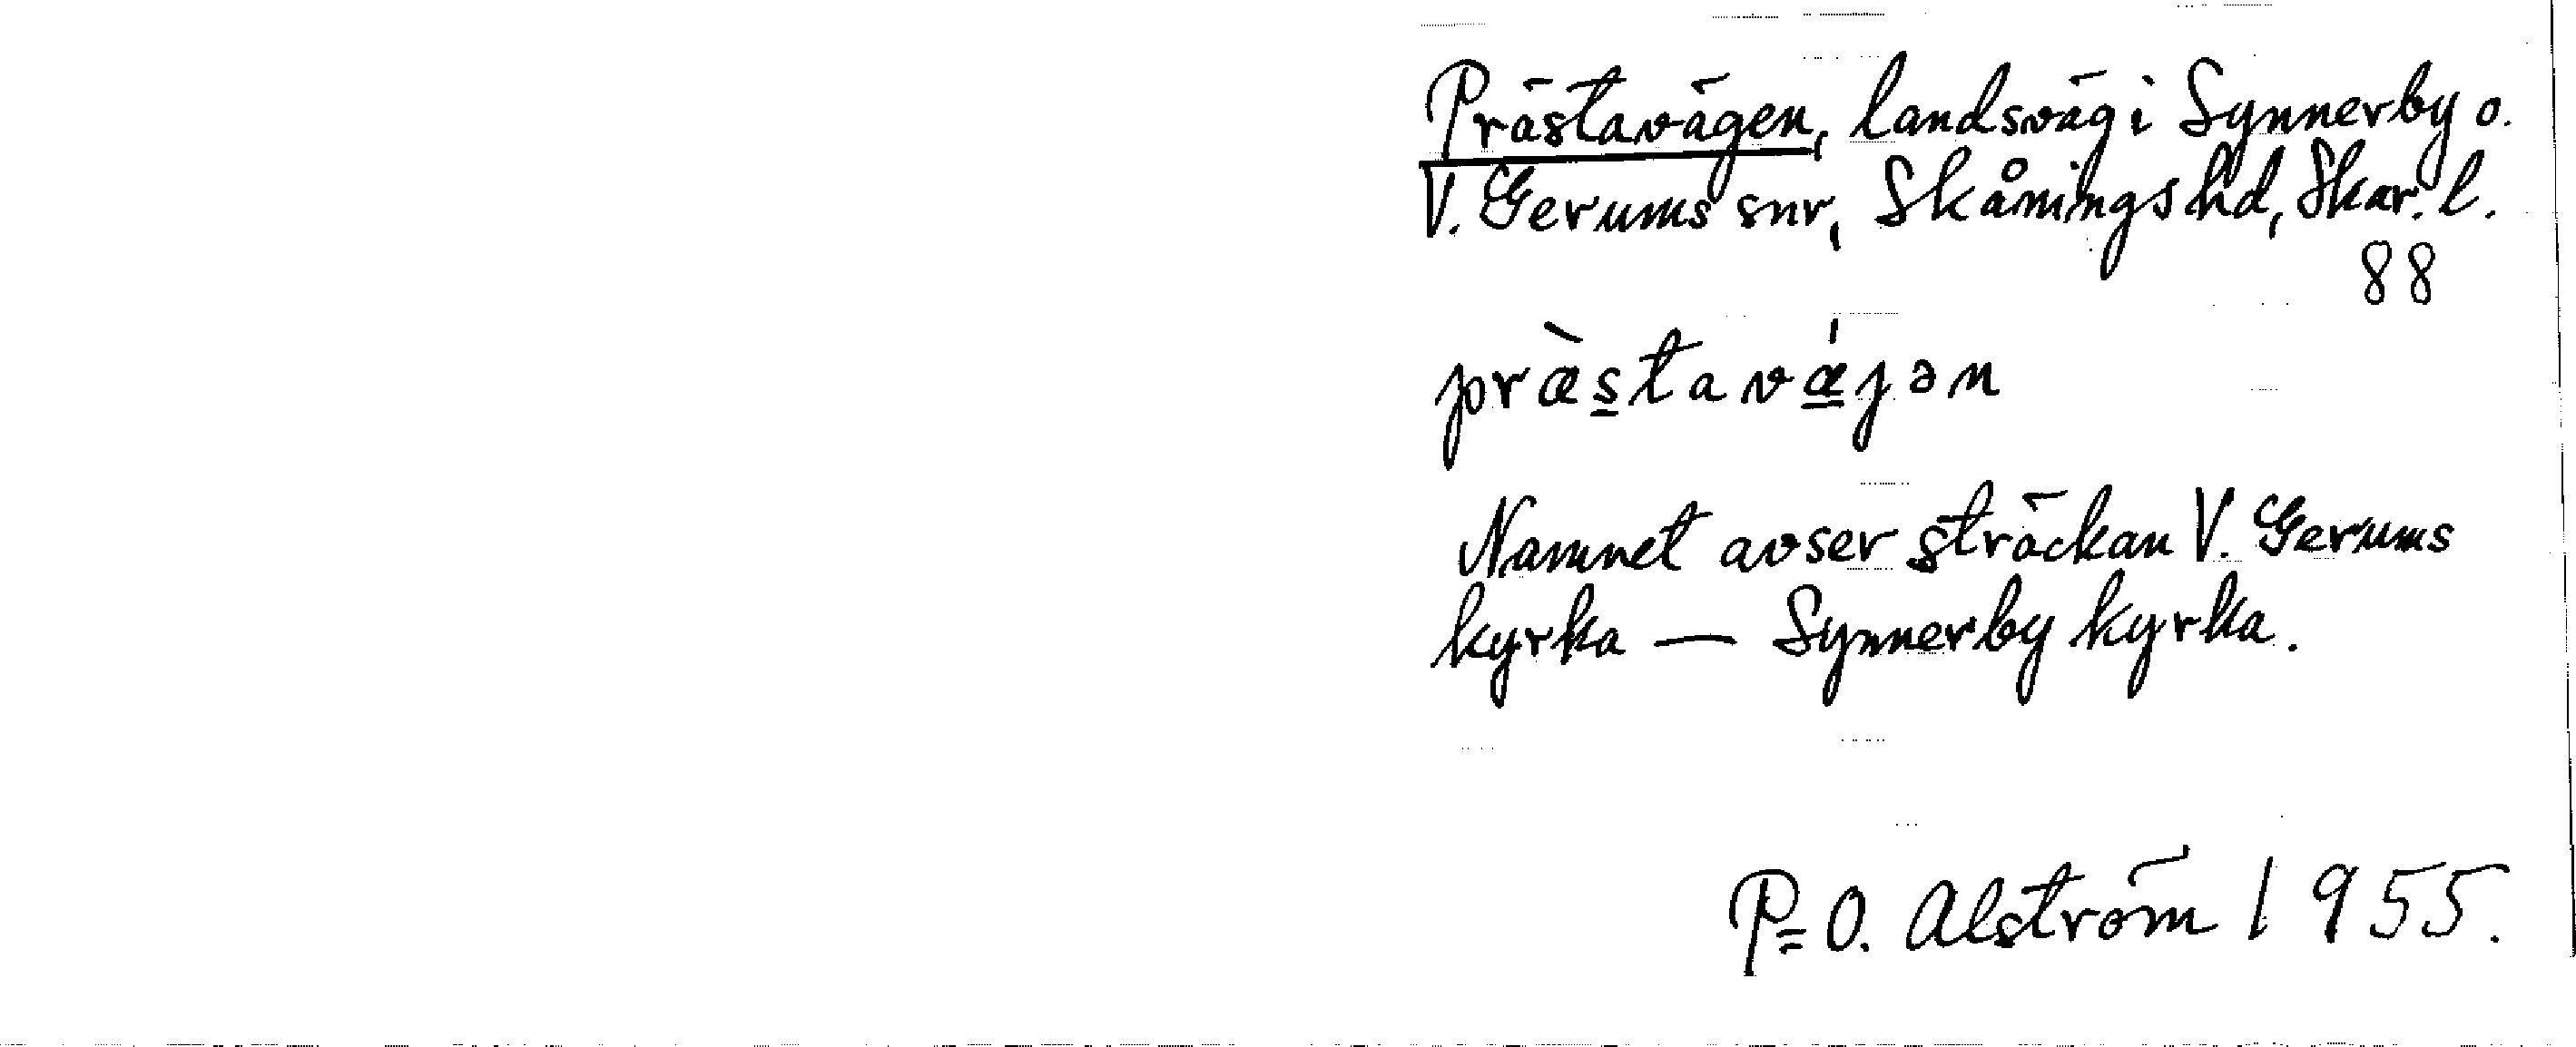 Prästavägen, landsväg i Synnerby o.
V. Gerums snr, Skånings hd, Skar. l.
88
præ̀s̲tavǽ̲jən
Namnet avser sträckan V. Gerums
kyrka — Synnerby kyrka.
P=O. Alström 1955.